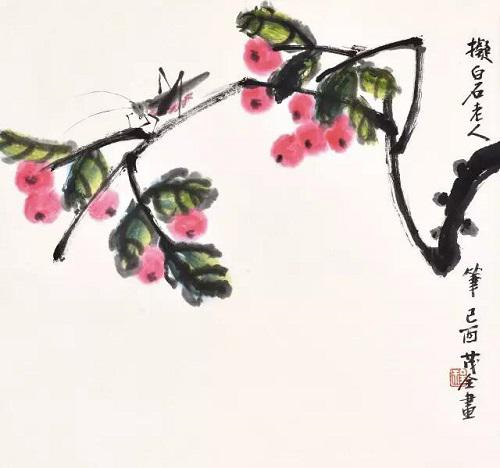 擬白石老人
筆己酉茂全畫